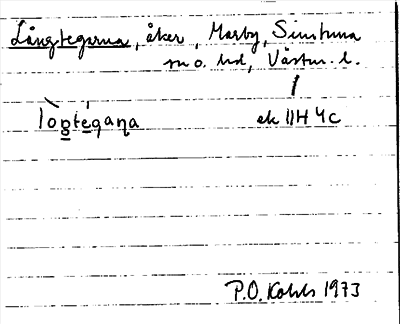 Långtegarna, åker, Marby, Simtuna
sn o. hd, Västm. l.
lòg̱té̱gaṉa ek 11H 4c
P.O. Kohls 1973